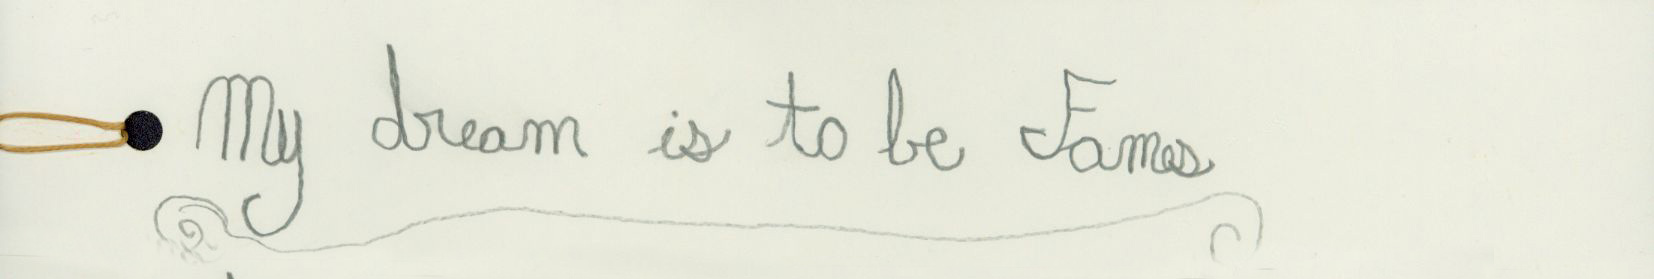 My dream is to be Famos